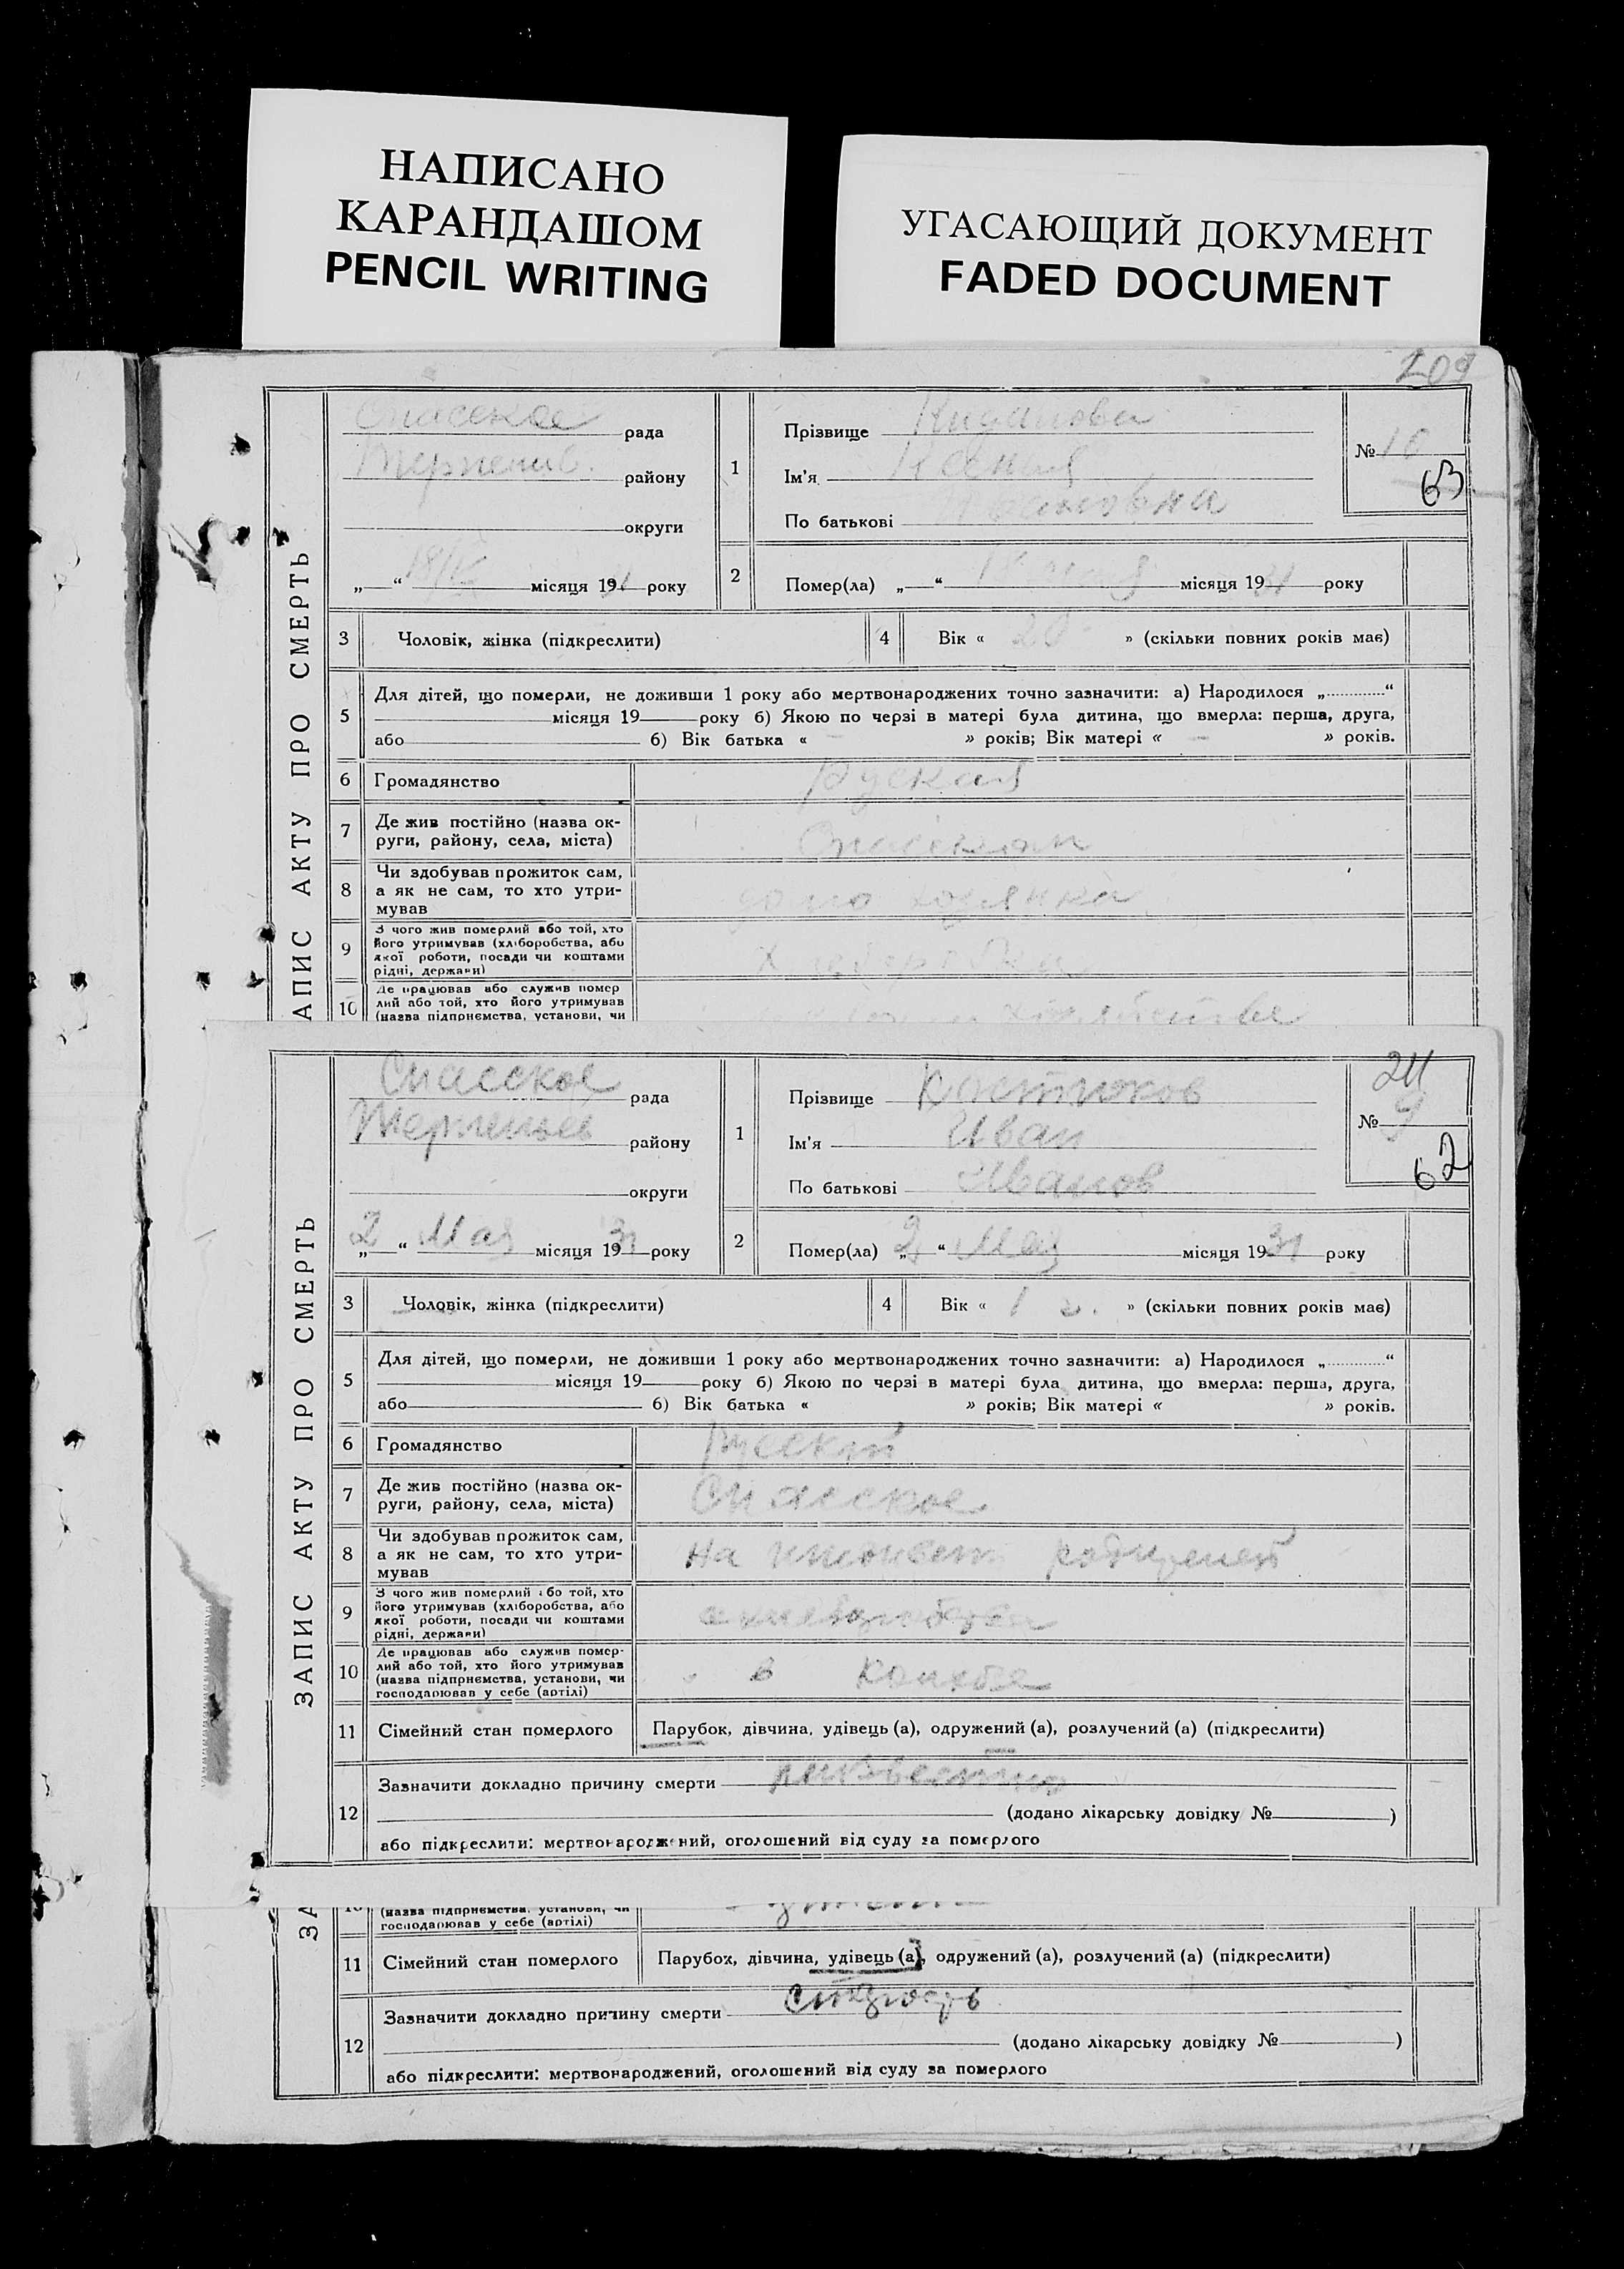 НАПИСАНО
КАРАНДАШОМ
PENCIL WRITING
УГАСАЮЩИЙ ДОКУМЕНТ
FADED DOCUMENT
209
ЗАПИС АКТУ ПРО СМЕРТЬ
Спасское рада
району
округи
„ “ місяця 19 року
1
Прізвище
Ім'я Ксения
По батькові Ивановна
№ 10
63
2
Помер(ла) „ “ місяця 1931 року
3 Чоловік, жінка (підкреслити)
4 Вік « » (скільки повних років має)
5 Для дітей, що померли, не доживши 1 року або мертвонароджених точно зазначити: а) Народилося „ “
місяця 19 року б) Якою по черзі в матері була дитина, що вмерла: перша, друга,
або б) Вік батька « » років; Вік матері « » років.
6 Громадянство Руская
7 Де жив постійно (назва ок-
руги, району, села, міста)
8 Чи здобував прожиток сам,
а як не сам, то хто утри-
мував
домохозяйка
9 З чого жив померлий або той, хто
його утримував (хліборобства, або
якої роботи, посади чи коштами
рідні, держави)
10 Де працював або служив помер
лий або той, хто його утримував
(назва підприємства, установи, чи
хозяйстве
ЗАПИС АКТУ ПРО СМЕРТЬ
Спасское рада
району
округи
„2“ Мая місяця 1931 року
1
Прізвище Костюков
Ім'я Иван
По батькові Иванов
24
№ 9
62
2
Помер(ла) „2“ Мая місяця 1931 року
3 Чоловік, жінка (підкреслити)
4 Вік « 1 г. » (скільки повних років має)
5 Для дітей, що померли, не доживши 1 року або мертвонароджених точно зазначити: а) Народилося „ “
місяця 19 року б) Якою по черзі в матері була дитина, що вмерла: перша, друга,
або б) Вік батька « » років; Вік матері « » років.
6 Громадянство русский
7 Де жив постійно (назва ок-
руги, району, села, міста)
Спасское
8 Чи здобував прожиток сам,
а як не сам, то хто утри-
мував
на родителей
9 З чого жив померлий або той, хто
його утримував (хліборобства, або
якої роботи, посади чи коштами
рідні, держави)
10 Де працював або служив помер-
лий або той, хто його утримував
(назва підприємства, установи, чи
господарював у себе (артілі)
в
11 Сімейний стан померлого Парубок, дівчина, удівець (а), одружений (а), розлучений (а) (підкреслити)
12 Зазначити докладно причину смерти
(додано лікарську довідку № )
або підкреслити: мертвонароджений, оголошений від суду за померлого
ЗА
10 (назва підприємства, установи, чи
господарював у себе (артілі)
11 Сімейний стан померлого Парубок, дівчина, удівець (а), одружений (а), розлучений (а) (підкреслити)
12 Зазначити докладно причину смерти старость
(додано лікарську довідку № )
або підкреслити: мертвонароджений, оголошений від суду за померлого